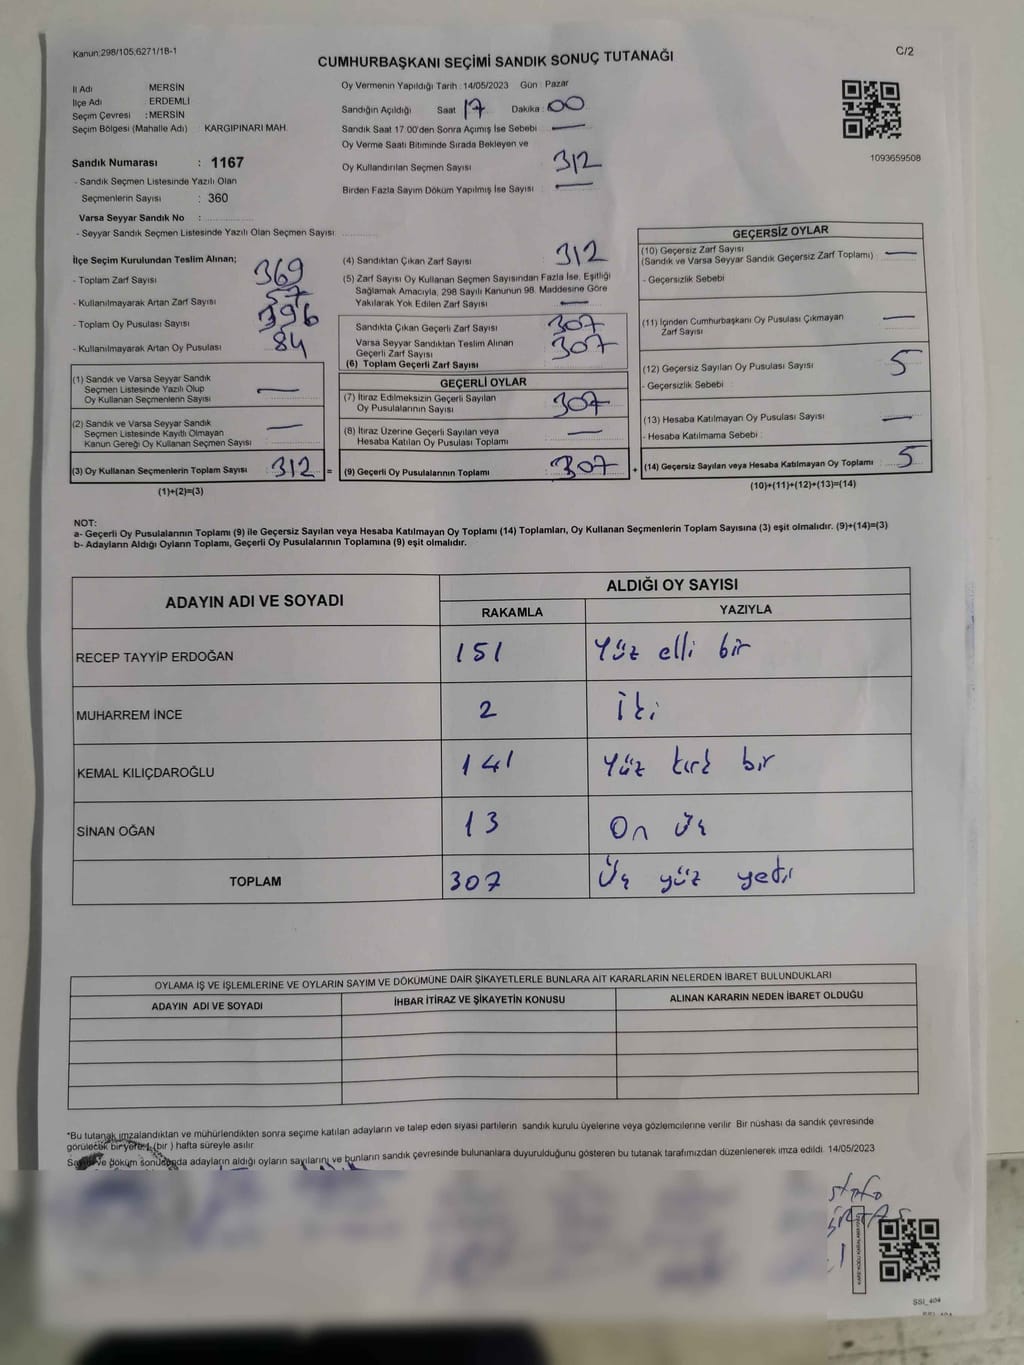 Kanun:298/105,6271/18-1
C/2
CUMHURBAŞKANI SEÇİMİ SANDIK SONUÇ TUTANAĞI
İl Adı MERSİN
İlçe Adı ERDEMLİ
Seçim Çevresi : MERSİN
Seçim Bölgesi (Mahalle Adı) : KARGIPINARI MAH.
Sandık Numarası : 1167
- Sandık Seçmen Listesinde Yazılı Olan
Seçmenlerin Sayısı : 360
Varsa Seyyar Sandık No :
- Seyyar Sandık Seçmen Listesinde Yazılı Olan Seçmen Sayısı
Oy Vermenin Yapıldığı Tarih : 14/05/2023 Gün : Pazar
Sandığın Açıldığı Saat 17 Dakika : 00
Sandık Saat 17:00'den Sonra Açımış İse Sebebi : —
Oy Verme Saati Bitiminde Sırada Bekleyen ve
Oy Kullandırılan Seçmen Sayısı 312
Birden Fazla Sayım Döküm Yapılmış İse Sayısı —
1093659508
İlçe Seçim Kurulundan Teslim Alınan;
- Toplam Zarf Sayısı 369
- Kullanılmayarak Artan Zarf Sayısı 57
- Toplam Oy Pusulası Sayısı 396
- Kullanılmayarak Artan Oy Pusulası 84
(1) Sandık ve Varsa Seyyar Sandık
Seçmen Listesinde Yazılı Olup
Oy Kullanan Seçmenlerin Sayısı —
(2) Sandık ve Varsa Seyyar Sandık
Seçmen Listesinde Kayıtlı Olmayan
Kanun Gereği Oy Kullanan Seçmen Sayısı —
(3) Oy Kullanan Seçmenlerin Toplam Sayısı 312 =
(1)+(2)=(3)
(4) Sandıktan Çıkan Zarf Sayısı 312
(5) Zarf Sayısı Oy Kullanan Seçmen Sayısından Fazla İse, Eşitliği
Sağlamak Amacıyla, 298 Sayılı Kanunun 98. Maddesine Göre
Yakılarak Yok Edilen Zarf Sayısı —
Sandıkta Çıkan Geçerli Zarf Sayısı 307
Varsa Seyyar Sandıktan Teslim Alınan
Geçerli Zarf Sayısı 307
(6) Toplam Geçerli Zarf Sayısı
GEÇERLİ OYLAR
(7) İtiraz Edilmeksizin Geçerli Sayılan
Oy Pusulalarının Sayısı 307
(8) İtiraz Üzerine Geçerli Sayılan veya
Hesaba Katılan Oy Pusulası Toplamı —
(9) Geçerli Oy Pusulalarının Toplamı 307 +
GEÇERSİZ OYLAR
(10) Geçersiz Zarf Sayısı
(Sandık ve Varsa Seyyar Sandık Geçersiz Zarf Toplamı) —
- Geçersizlik Sebebi
(11) İçinden Cumhurbaşkanı Oy Pusulası Çıkmayan
Zarf Sayısı —
(12) Geçersiz Sayılan Oy Pusulası Sayısı 5
- Geçersizlik Sebebi :
(13) Hesaba Katılmayan Oy Pusulası Sayısı —
- Hesaba Katılmama Sebebi :
(14) Geçersiz Sayılan veya Hesaba Katılmayan Oy Toplamı : 5
(10)+(11)+(12)+(13)=(14)
NOT:
a- Geçerli Oy Pusulalarının Toplamı (9) ile Geçersiz Sayılan veya Hesaba Katılmayan Oy Toplamı (14) Toplamları, Oy Kullanan Seçmenlerin Toplam Sayısına (3) eşit olmalıdır. (9)+(14)=(3)
b- Adayların Aldığı Oyların Toplamı, Geçerli Oy Pusulalarının Toplamına (9) eşit olmalıdır.
ADAYIN ADI VE SOYADI ALDIĞI OY SAYISI
RAKAMLA YAZIYLA
RECEP TAYYİP ERDOĞAN 151 Yüz elli bir
MUHARREM İNCE 2 İki
KEMAL KILIÇDAROĞLU 141 Yüz kırk bir
SİNAN OĞAN 13 On üç
TOPLAM 307 Üç yüz yedi
OYLAMA İŞ VE İŞLEMLERİNE VE OYLARIN SAYIM VE DÖKÜMÜNE DAİR ŞİKAYETLERLE BUNLARA AİT KARARLARIN NELERDEN İBARET BULUNDUKLARI
ADAYIN ADI VE SOYADI İHBAR İTİRAZ VE ŞİKAYETİN KONUSU ALINAN KARARIN NEDEN İBARET OLDUĞU
*Bu tutanak imzalandıktan ve mühürlendikten sonra seçime katılan adayların ve talep eden siyasi partilerin sandık kurulu üyelerine veya gözlemcilerine verilir. Bir nüshası da sandık çevresinde
görülecek bir yere 1 (bir ) hafta süreyle asılır.
Sayım ve döküm sonucunda adayların aldığı oyların sayılarını ve bunların sandık çevresinde bulunanlara duyurulduğunu gösteren bu tutanak tarafımızdan düzenlenerek imza edildi. 14/05/2023
SSİ_404